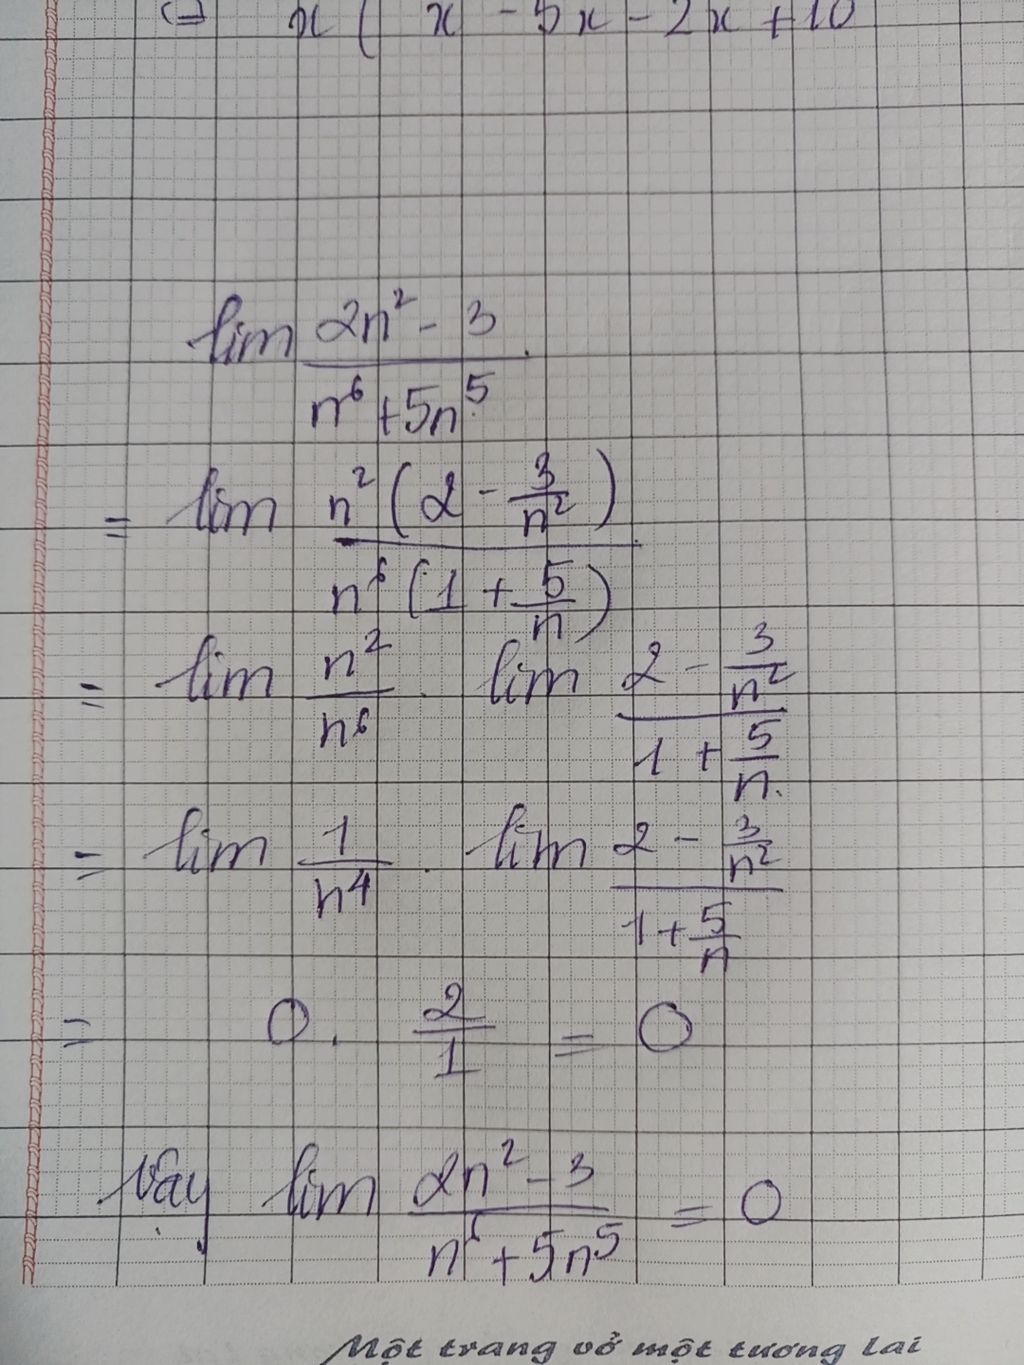 ⇔ x( x - 5x - 2x + 10
lim (2n² - 3)/(n⁶ + 5n⁵)
= lim (n² (2 - 3/n²))/(n⁶ (1 + 5/n))
= lim n²/n⁶ . lim (2 - 3/n²)/(1 + 5/n)
= lim 1/n⁴ . lim (2 - 3/n²)/(1 + 5/n)
= 0 . 2/1 = 0
Vậy lim (2n² - 3)/(n⁶ + 5n⁵) = 0
Một trang vở một tương lai